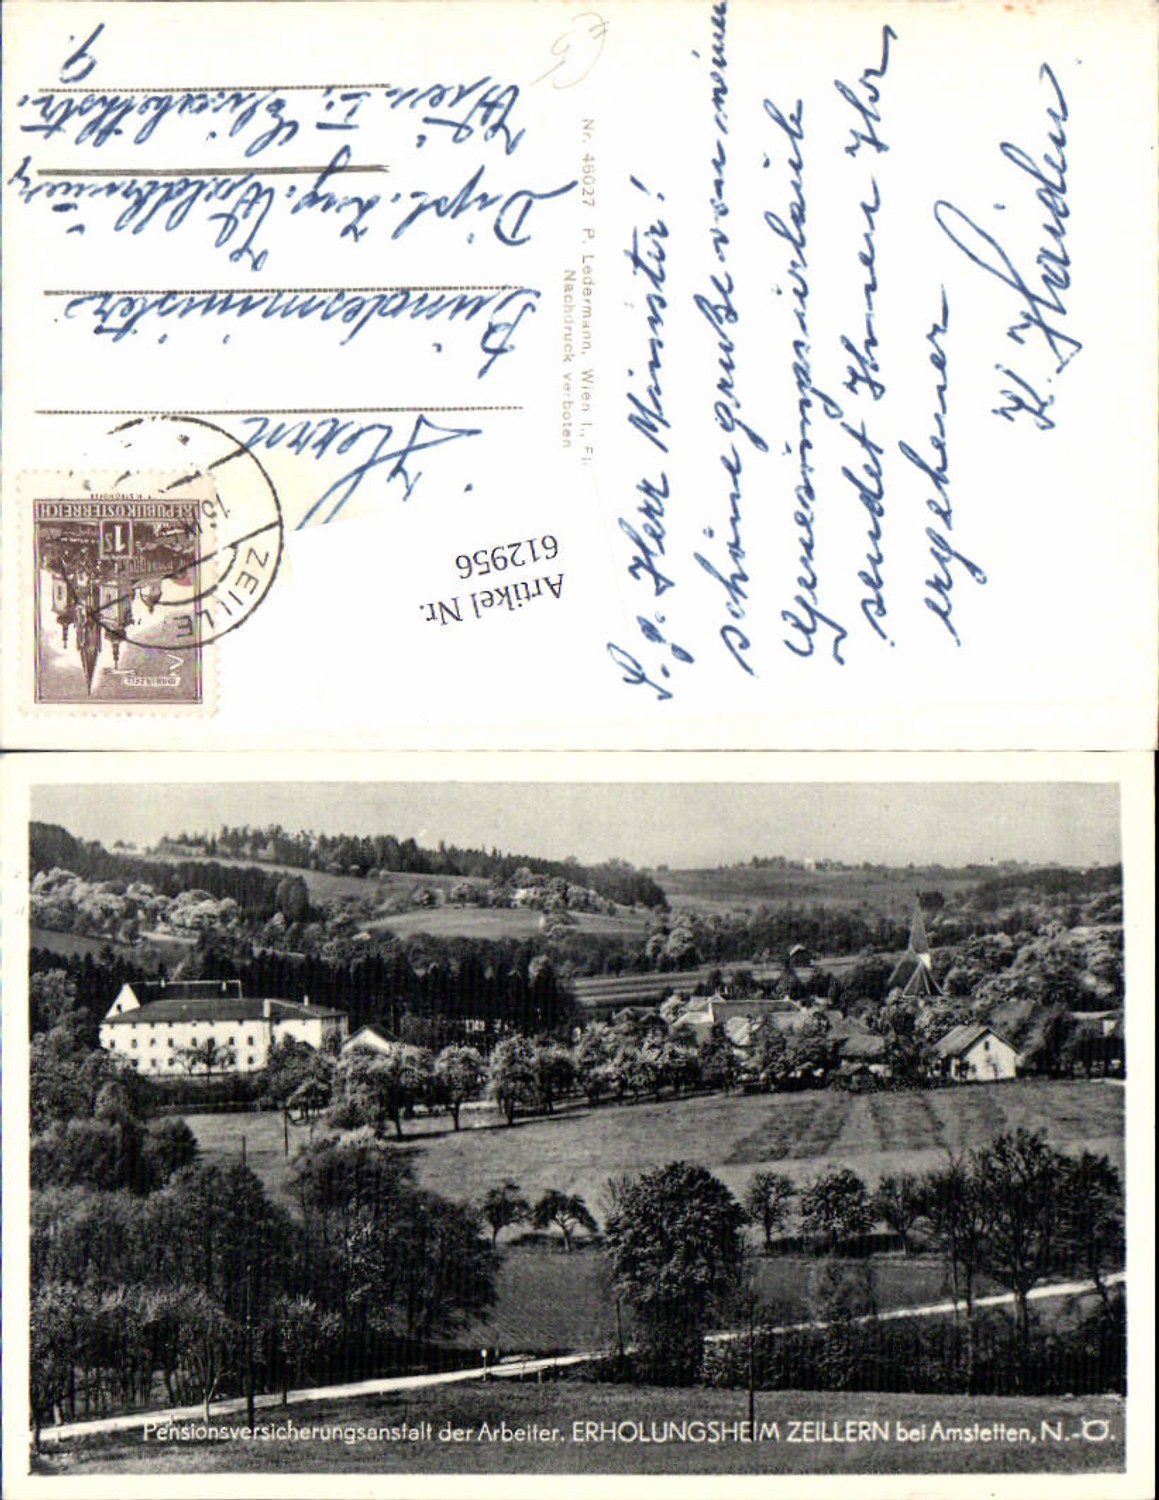 S. g. Herr Minister!
schöne grüße von meinem
Genesungsurlaub
sendet Ihnen Ihr
ergebener
K. Haiden
Nr. 46027 P. Ledermann, Wien I., Fl.
Nachdruck verboten
Herrn
Bundesminister
Dipl. Ing. Waldbrunner
Wien I, Elisabethstr.
9.
Artikel Nr.
612956
ZEILLE
MARIAZELL
1 S
REPUBLIK ÖSTERREICH
Pensionsversicherungsanstalt der Arbeiter. ERHOLUNGSHEIM ZEILLERN bei Amstetten, N.-Ö.